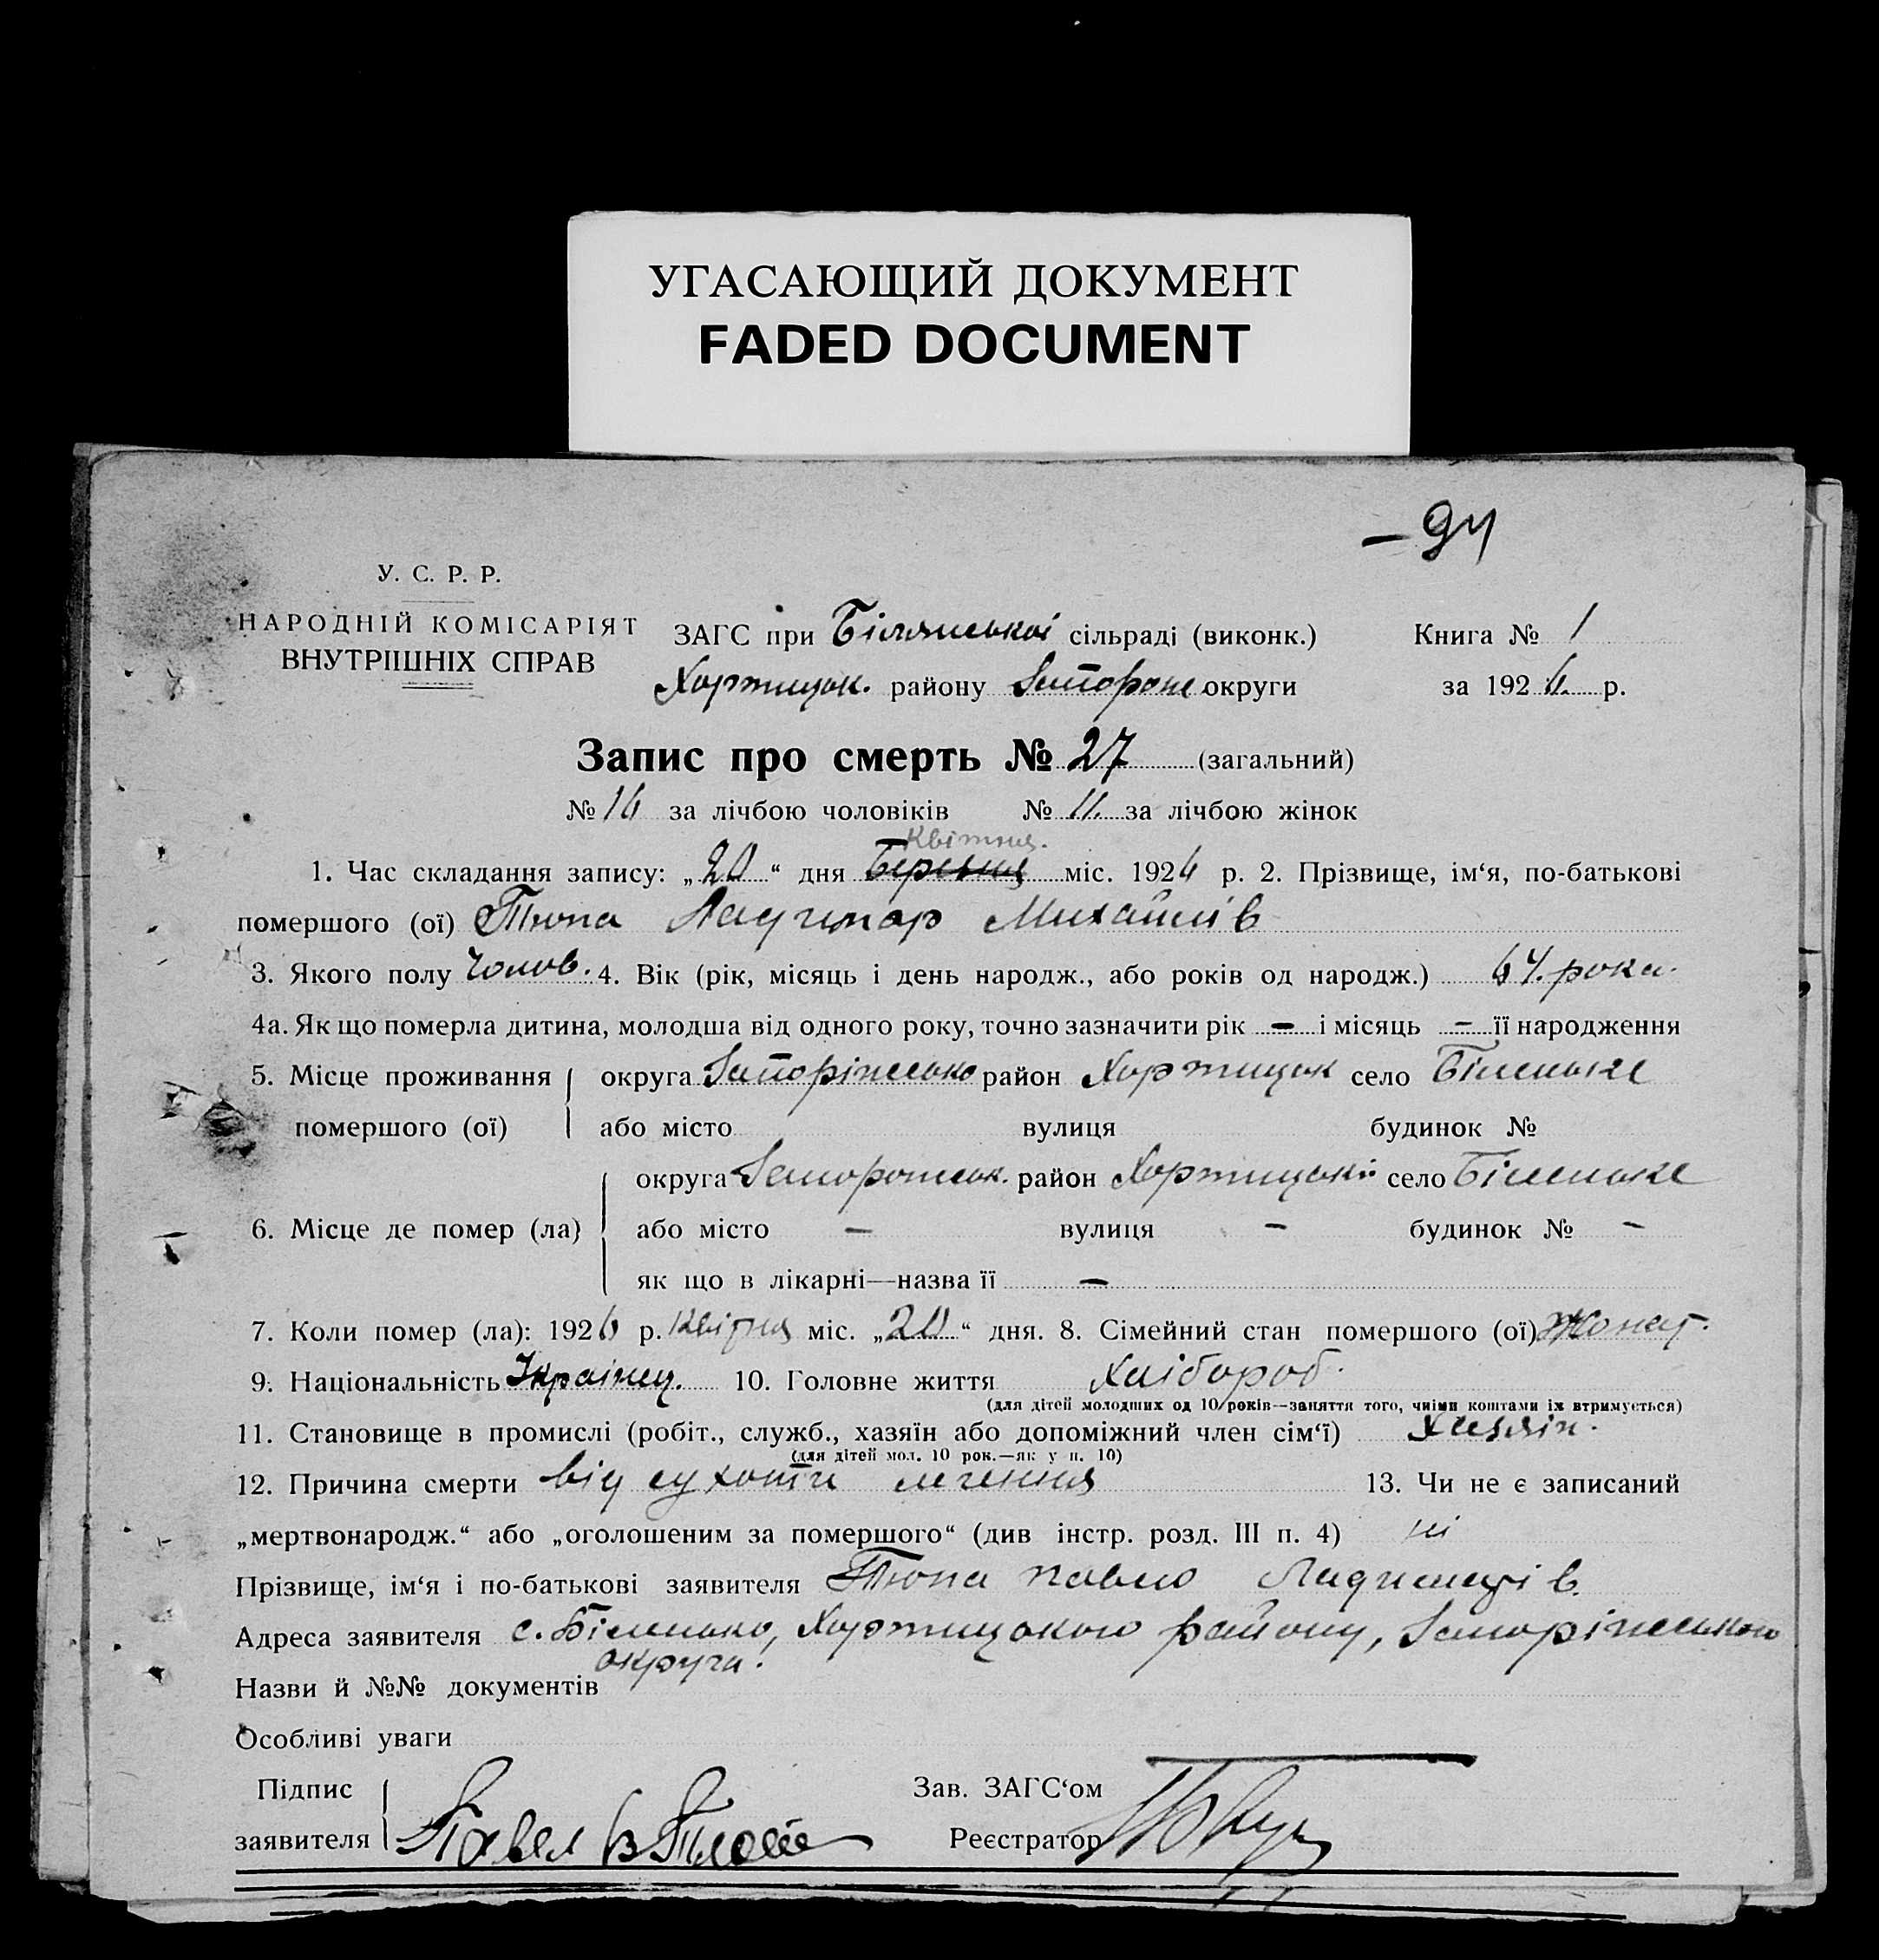 УГАСАЮЩИЙ ДОКУМЕНТ
FADED DOCUMENT
У. С. Р. Р.
НАРОДНІЙ КОМІСАРІЯТ
ВНУТРІШНІХ СПРАВ
ЗАГС при Білянської сільраді (виконк.) Книга № 1
Хортицьк. району округи за 1926 р.
Запис про смерть № 27 (загальний)
№ 16 за лічбою чоловіків № 11 за лічбою жінок
Квітня.
1. Час складання запису: „20“ дня Березня міс. 1926 р. 2. Прізвище, ім‘я, по-батькові
помершого (ої) Тюпа Михайлів
3. Якого полу чолов. 4. Вік (рік, місяць і день народж., або років од народж.) 64. рока.
4а. Як що померла дитина, молодша від одного року, точно зазначити рік – і місяць – її народження
5. Місце проживання округа Запоріжсько район Хортицьк село Біленьке
помершого (ої) або місто вулиця будинок №
округа Запорожськ. район Хортицькій село Біленьке
6. Місце де помер (ла) або місто – вулиця – будинок № –
як що в лікарні—назва її –
7. Коли помер (ла): 1926 р. Квітня міс. „20“ дня. 8. Сімейний стан помершого (ої) Жонат.
9. Національність Українец. 10. Головне життя Хлібороб.
(для дітей молодших од 10 років—заняття того, чиїми коштами їх втримується)
11. Становище в промислі (робіт., служб., хазяїн або допоміжний член сім‘ї) Хазяін.
(для дітей мол. 10 рок.—як у п. 10)
12. Причина смерти від сухоти легення 13. Чи не є записаний
„мертвонародж.“ або „оголошеним за помершого“ (див інстр. розд. III п. 4) ні
Прізвище, ім‘я і по-батькові заявителя Тюпа Павло
Адреса заявителя с. Біленько, Хортицького району, Запоріжського
округи.
Назви й №№ документів
Особливі уваги
Підпис Зав. ЗАГС‘ом
заявителя Павел Реєстратор